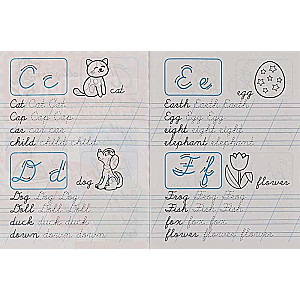 C c
cat
Cat Cat Cat
Cap Cap Cap
car car car
child child child
D d
dog
Dog Dog Dog
Doll Doll Doll
duck duck duck
down down down
E e
egg
Earth Earth Earth
Egg Egg Egg
eight eight eight
elephant elephant
F f
flower
Frog Frog Frog
Fish Fish Fish
fox fox fox
flower flower flower